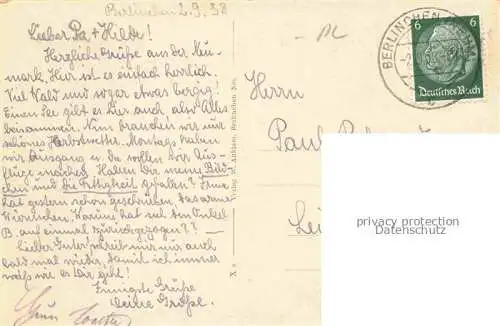 Berlinchen 2.9.38
Lieber Pa + Hilde!
Herzliche Grüße aus der Neu-
mark. Hier ist es einfach herrlich.
Viel Wald und sogar etwas bergig!
Einen See gibt es hier auch, also Alles
beisammen. Nun brauchen wir nur
schönes Herbstwetter. Montags haben
wir Ausgang u. da wollen wir Aus-
flüge machen. Haben Dir meine Bild-
chen und die Fettigkeit gefallen?
hat gestern schon geschrieben, das arme
Würmchen. Warum hat sich Onkel
B. auf einmal zurückgezogen??
Lieber Guter schreib mir nur auch
bald mal wieder, damit ich immer
weiß wie es Dir geht!
Innigste Grüße
Deine Große.
Herrn
Paul
Lei
BERLINCHEN
6 6
Deutsches Reich
privacy protection
Datenschutz